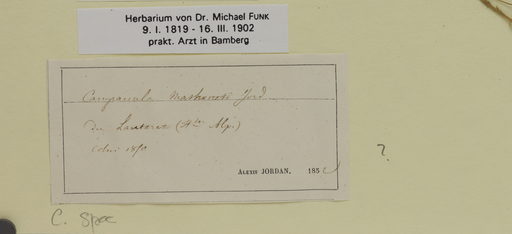 Herbarium von Dr. Michael FUNK
9. I. 1819 - 16. III. 1902
prakt. Arzt in Bamberg
Campanula Jord.
Du Lautaret (Htes Alpes)
ALEXIS JORDAN, 185
?
C. spec